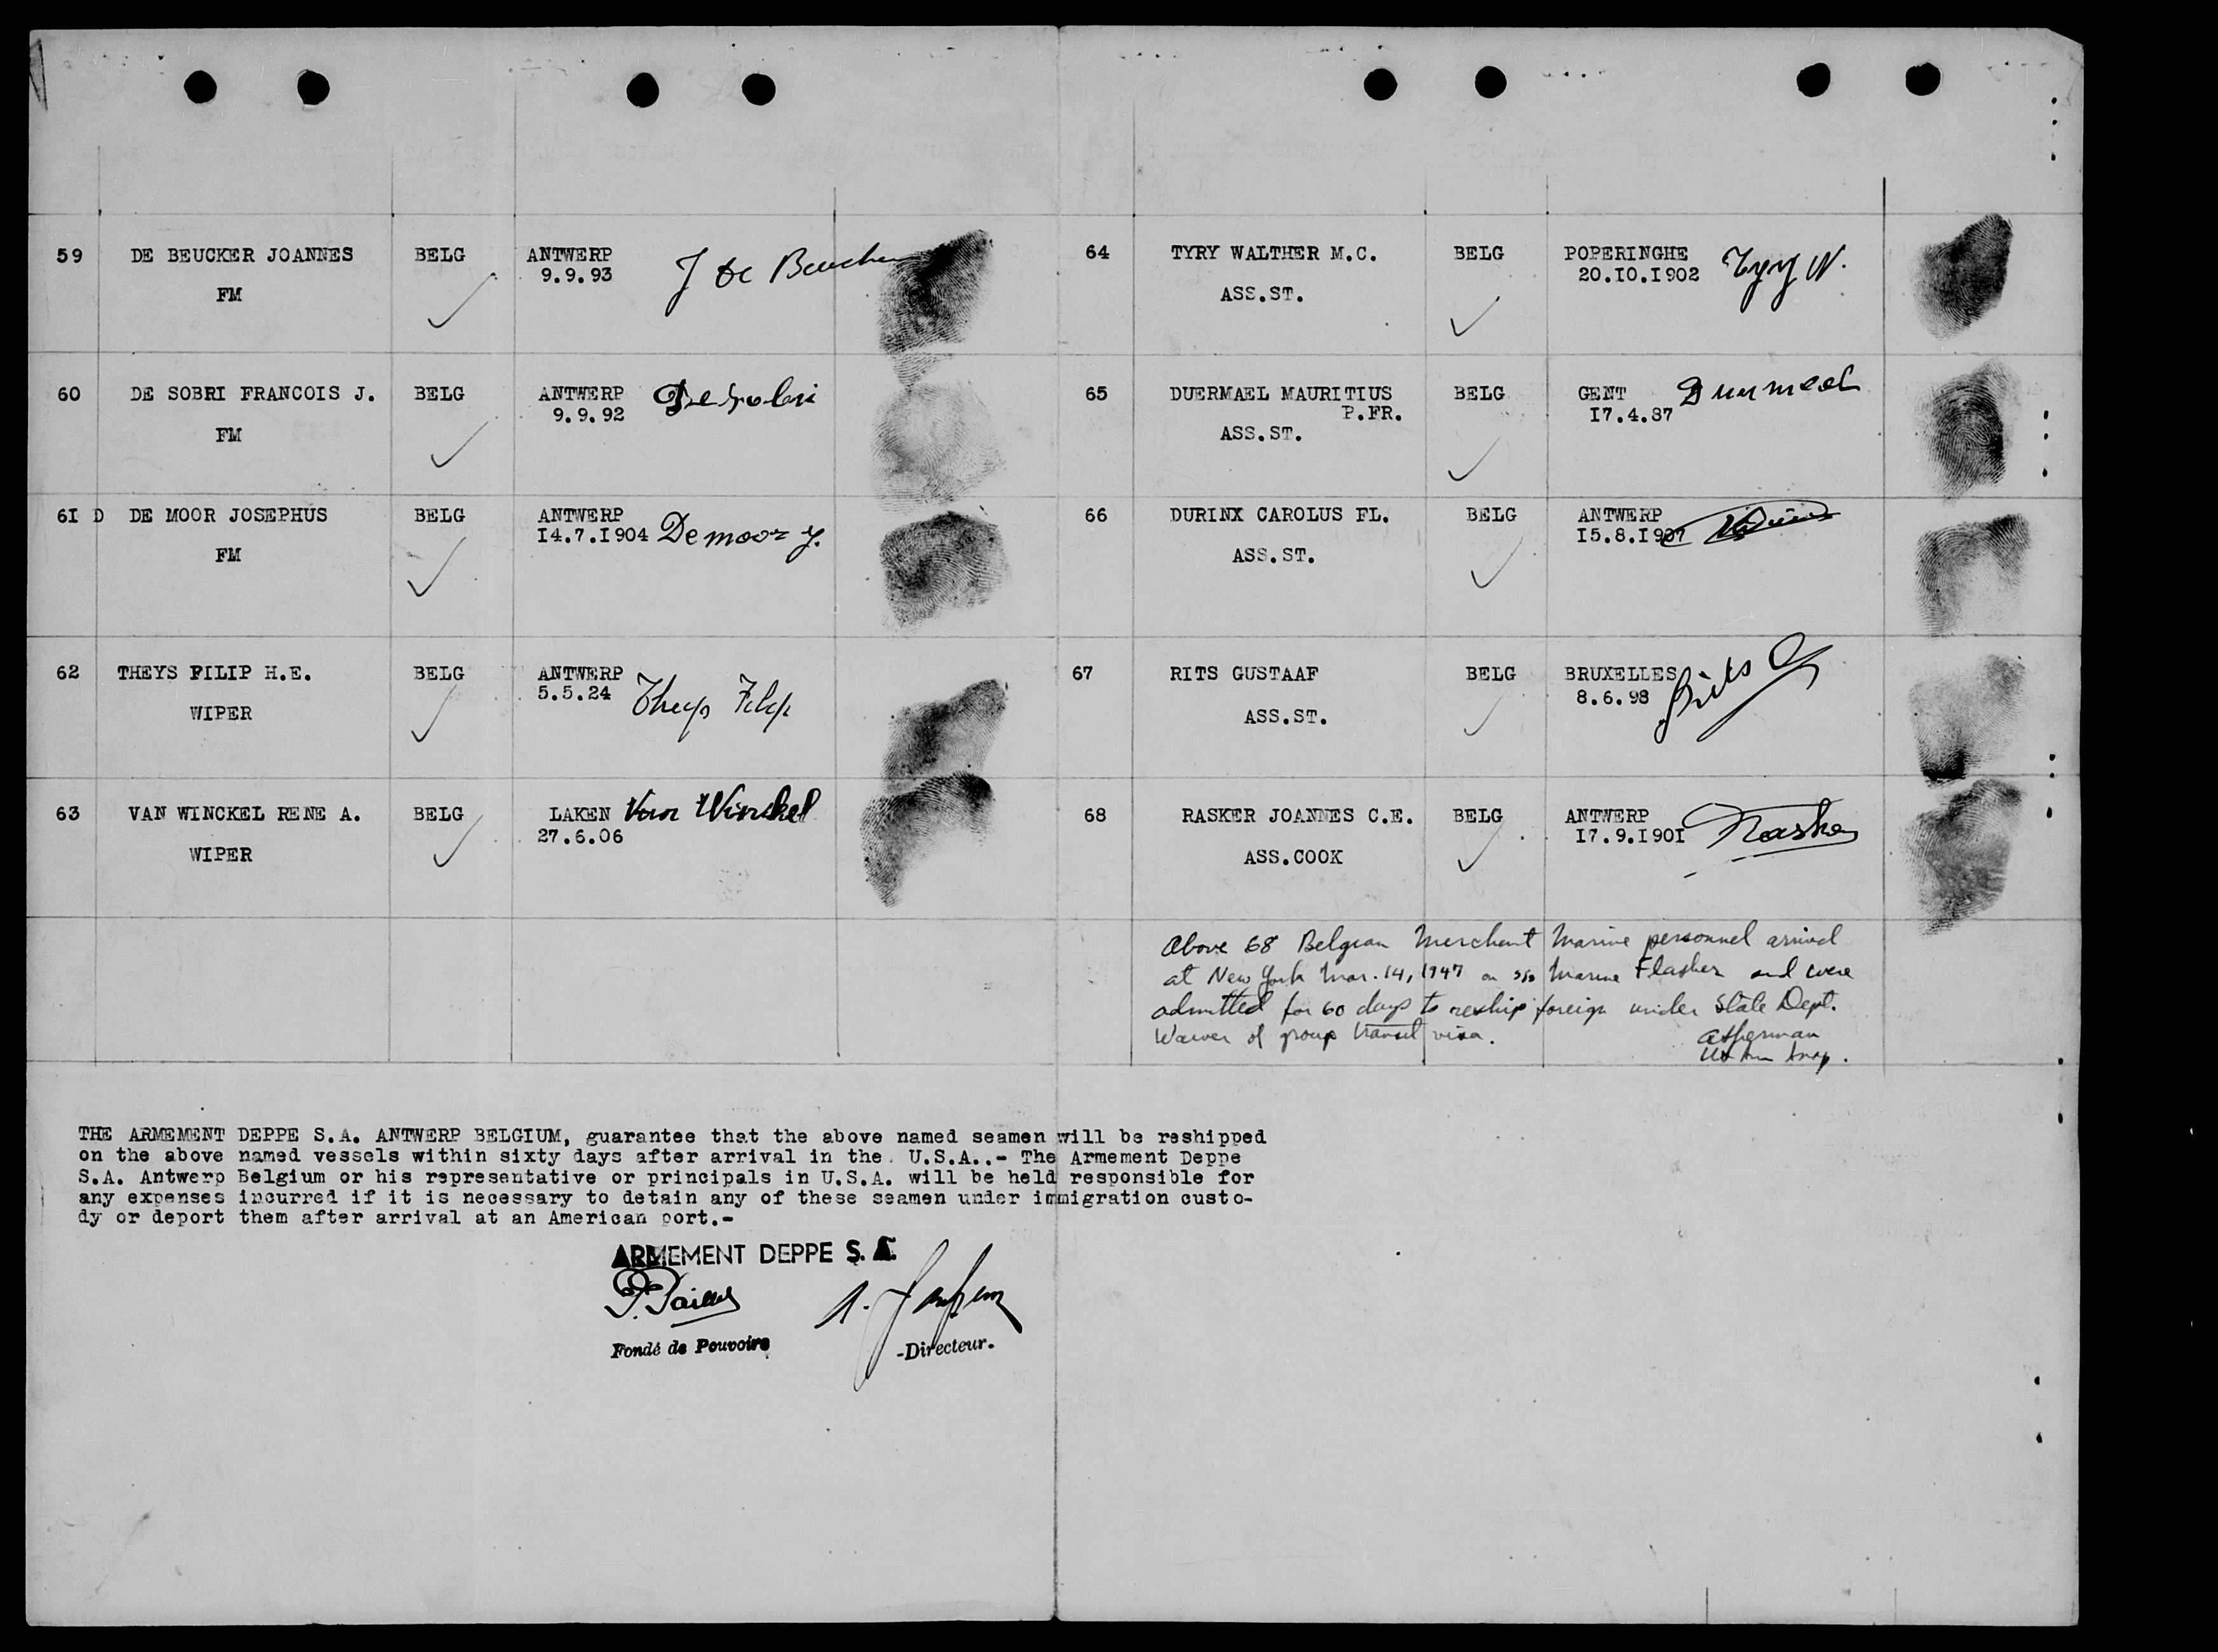 59 DE BEUCKER JOANNES BELG ANTWERP J De Beucker
9.9.93
FM
60 DE SOBRI FRANCOIS J. BELG ANTWERP DeSobri
9.9.92
FM
6I D DE MOOR JOSEPHUS BELG ANTWERP
I4.7.I904 Demoor J.
FM
62 THEYS FILIP H.E. BELG ANTWERP
5.5.24 Theys Filip
WIPER
63 VAN WINCKEL RENE A. BELG LAKEN Van Winckel
27.6.06
WIPER
64 TYRY WALTHER M.C. BELG POPERINGHE Tyry W.
20.I0.I902
ASS.ST.
65 DUERMAEL MAURITIUS BELG GENT Duermael
P.FR. I7.4.87
ASS.ST.
66 DURINX CAROLUS FL. BELG ANTWERP
I5.8.I907
ASS.ST.
67 RITS GUSTAAF BELG BRUXELLES Rits G
8.6.98
ASS.ST.
68 RASKER JOANNES C.E. BELG ANTWERP
I7.9.I90I Rasker
ASS.COOK
Above 68 Belgian Merchant Marine personnel arrived
at New York Mar. 14, 1947 on S/S Marine Flasher and were
admitted for 60 days to reship foreign under State Dept.
Waiver of group transit visa.
THE ARMEMENT DEPPE S.A. ANTWERP BELGIUM, guarantee that the above named seamen will be reshipped
on the above named vessels within sixty days after arrival in the U.S.A..- The Armement Deppe
S.A. Antwerp Belgium or his representative or principals in U.S.A. will be held responsible for
any expenses incurred if it is necessary to detain any of these seamen under immigration custo-
dy or deport them after arrival at an American port.-
ARMEMENT DEPPE S. A.
Fondé de Pouvoirs -Directeur.